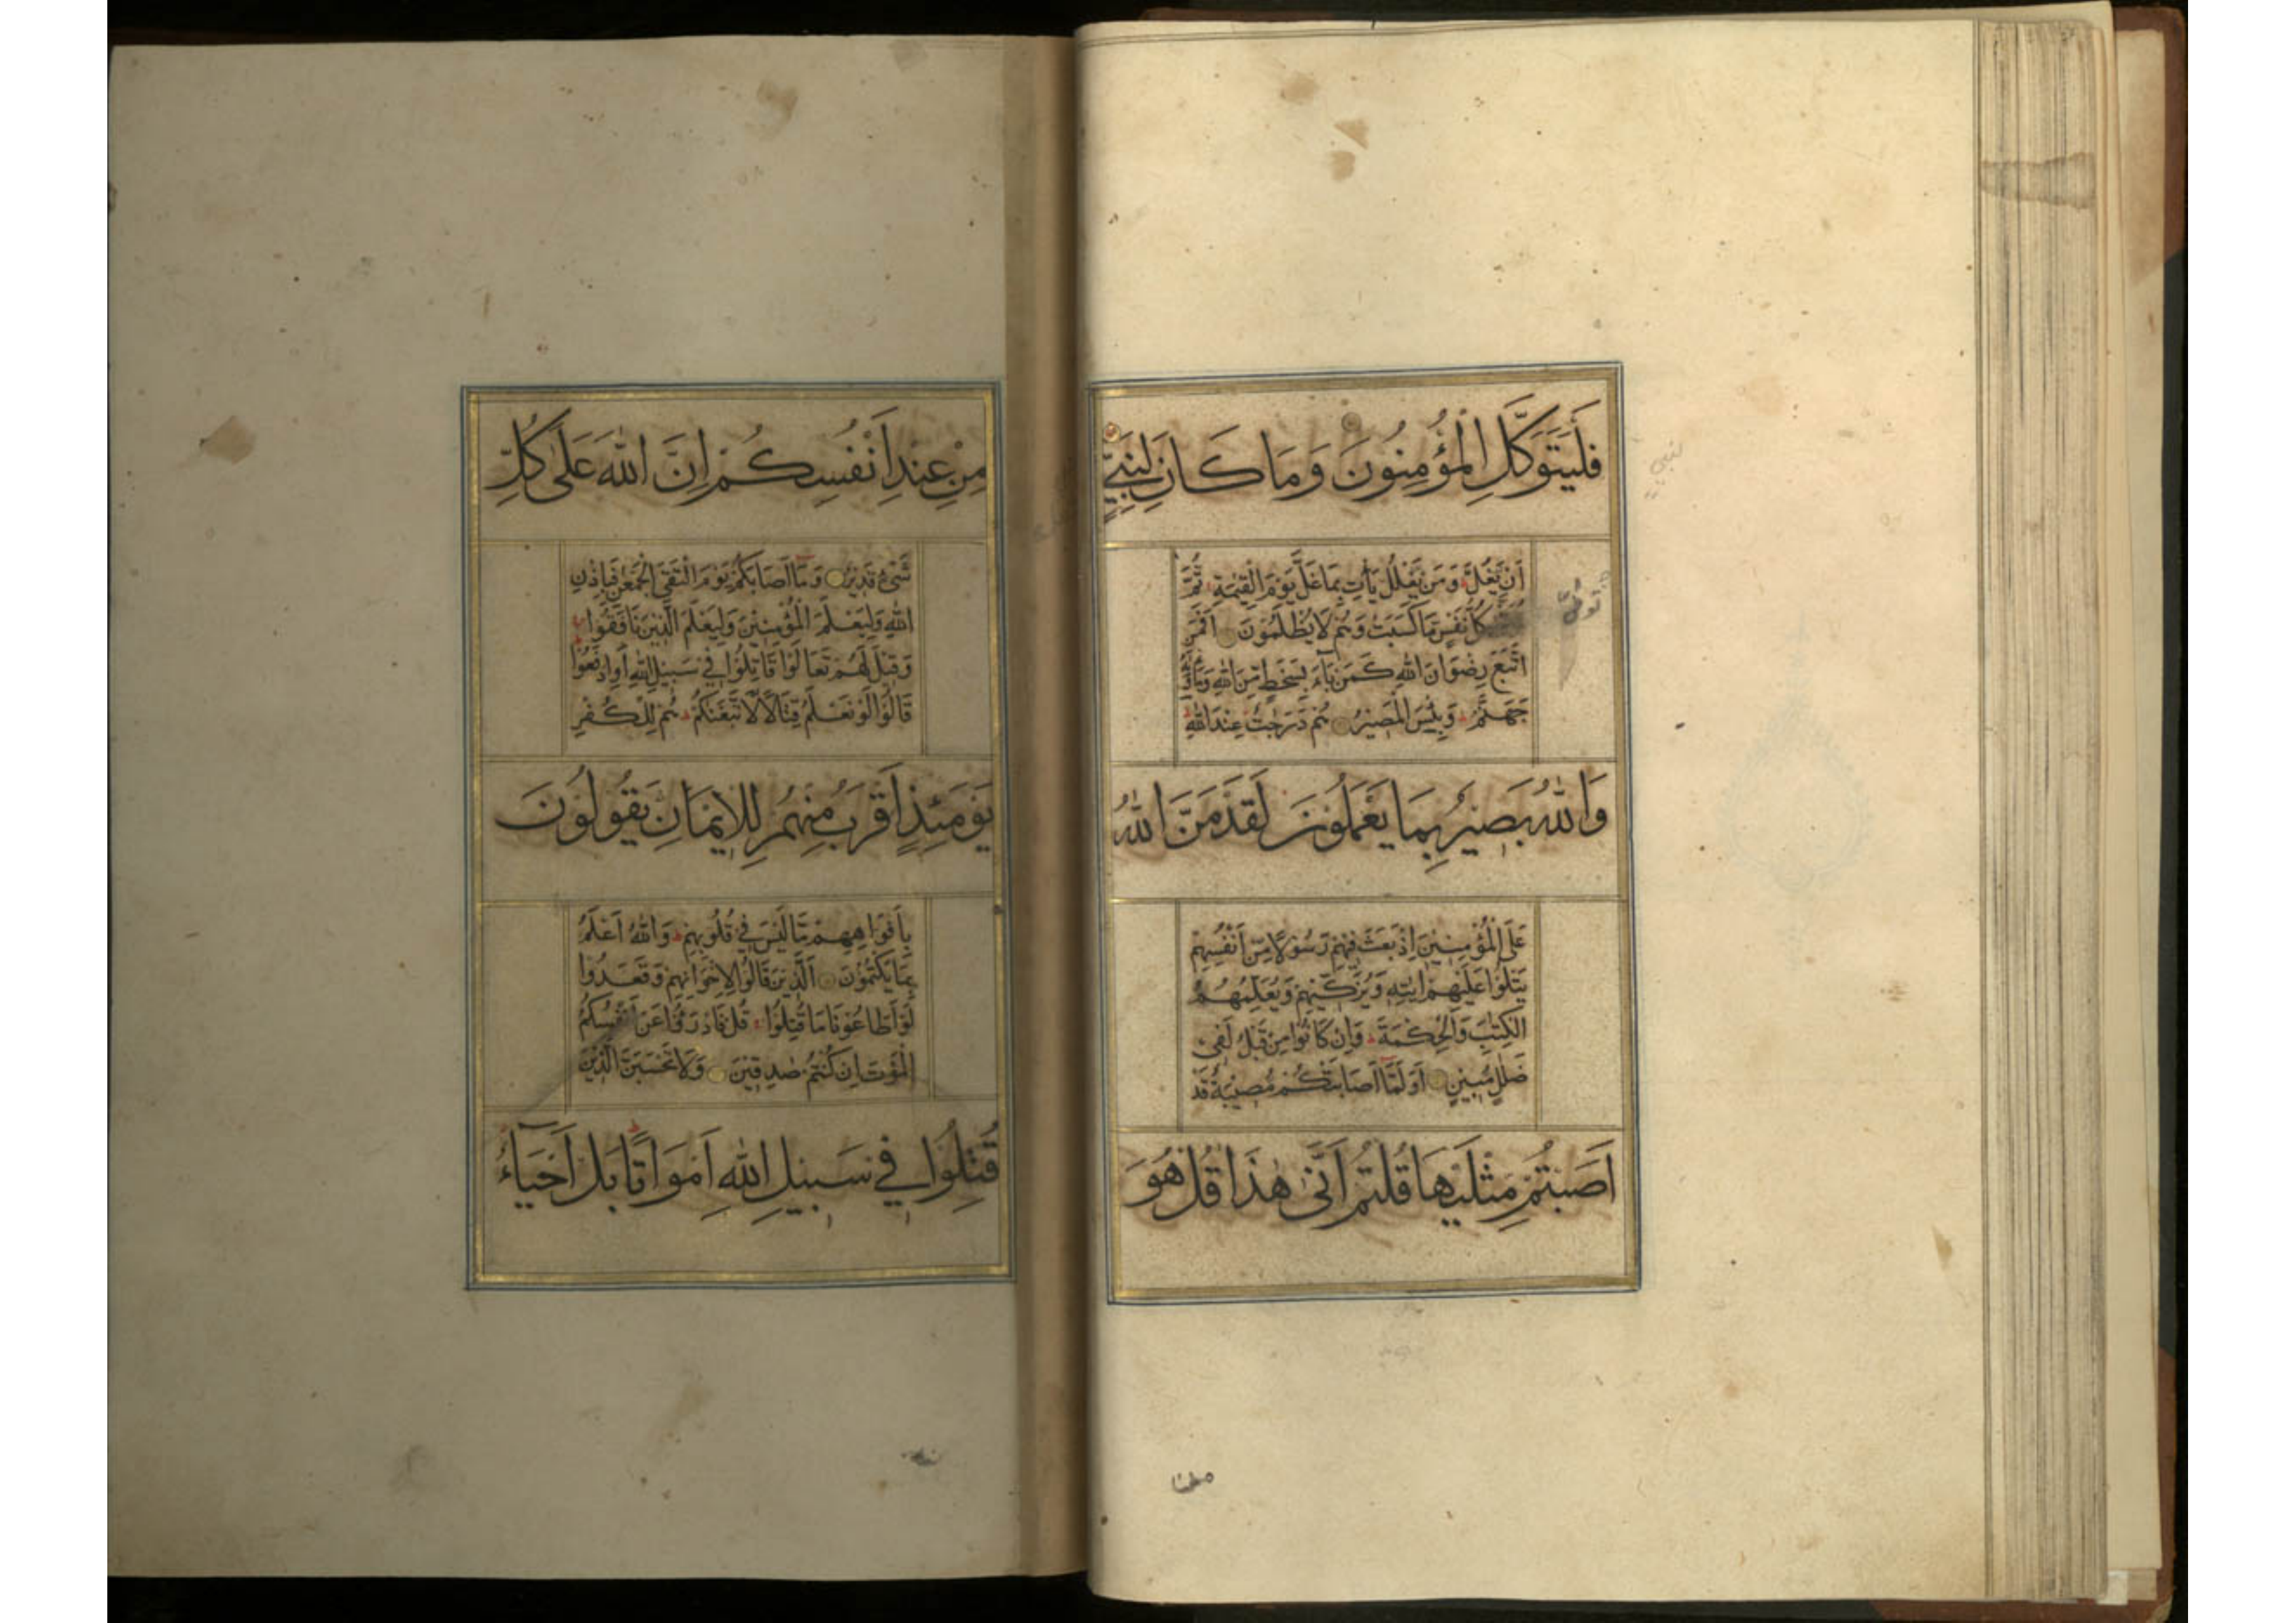 فَلْيَتَوَكَّلِ الْمُؤْمِنُونَ وَمَا كَانَ لِنَبِيٍّ
اَنْ يَّغُلَّ وَمَنْ يَّغْلُلْ يَأْتِ بِمَا غَلَّ يَوْمَ الْقِيٰمَةِ ثُمَّ
كُلُّ نَفْسٍ مَّا كَسَبَتْ وَهُمْ لَا يُظْلَمُوْنَ اَفَمَنِ
اتَّبَعَ رِضْوَانَ اللّٰهِ كَمَنْ بَآءَ بِسَخَطٍ مِّنَ اللّٰهِ وَمَأْوٰىهُ
جَهَنَّمُ وَبِئْسَ الْمَصِيْرُ هُمْ دَرَجٰتٌ عِنْدَ اللّٰهِ
وَاللّٰهُ بَصِيْرٌ بِمَا يَعْمَلُوْنَ لَقَدْ مَنَّ اللّٰهُ
عَلَى الْمُؤْمِنِيْنَ اِذْ بَعَثَ فِيْهِمْ رَسُوْلًا مِّنْ اَنْفُسِهِمْ
يَتْلُوْا عَلَيْهِمْ اٰيٰتِهٖ وَيُزَكِّيْهِمْ وَيُعَلِّمُهُمُ
الْكِتٰبَ وَالْحِكْمَةَ وَاِنْ كَانُوْا مِنْ قَبْلُ لَفِيْ
ضَلٰلٍ مُّبِيْنٍ اَوَلَمَّا اَصَابَتْكُمْ مُّصِيْبَةٌ قَدْ
اَصَبْتُمْ مِثْلَيْهَا قُلْتُمْ اَنّٰى هٰذَا قُلْ هُوَ
مِنْ عِنْدِ اَنْفُسِكُمْ اِنَّ اللّٰهَ عَلٰى كُلِّ
شَيْءٍ قَدِيْرٌ وَمَا اَصَابَكُمْ يَوْمَ الْتَقَى الْجَمْعٰنِ فَبِاِذْنِ
اللّٰهِ وَلِيَعْلَمَ الْمُؤْمِنِيْنَ وَلِيَعْلَمَ الَّذِيْنَ نَافَقُوْا
وَقِيْلَ لَهُمْ تَعَالَوْا قَاتِلُوْا فِيْ سَبِيْلِ اللّٰهِ اَوِ ادْفَعُوْا
قَالُوْا لَوْ نَعْلَمُ قِتَالًا لَّاتَّبَعْنٰكُمْ هُمْ لِلْكُفْرِ
يَوْمَئِذٍ اَقْرَبُ مِنْهُمْ لِلْاِيْمَانِ يَقُوْلُوْنَ
بِاَفْوَاهِهِمْ مَّا لَيْسَ فِيْ قُلُوْبِهِمْ وَاللّٰهُ اَعْلَمُ
بِمَا يَكْتُمُوْنَ اَلَّذِيْنَ قَالُوْا لِاِخْوَانِهِمْ وَقَعَدُوْا
لَوْ اَطَاعُوْنَا مَا قُتِلُوْا قُلْ فَادْرَءُوْا عَنْ اَنْفُسِكُمُ
الْمَوْتَ اِنْ كُنْتُمْ صٰدِقِيْنَ وَلَا تَحْسَبَنَّ الَّذِيْنَ
قُتِلُوْا فِيْ سَبِيْلِ اللّٰهِ اَمْوَاتًا بَلْ اَحْيَآءٌ